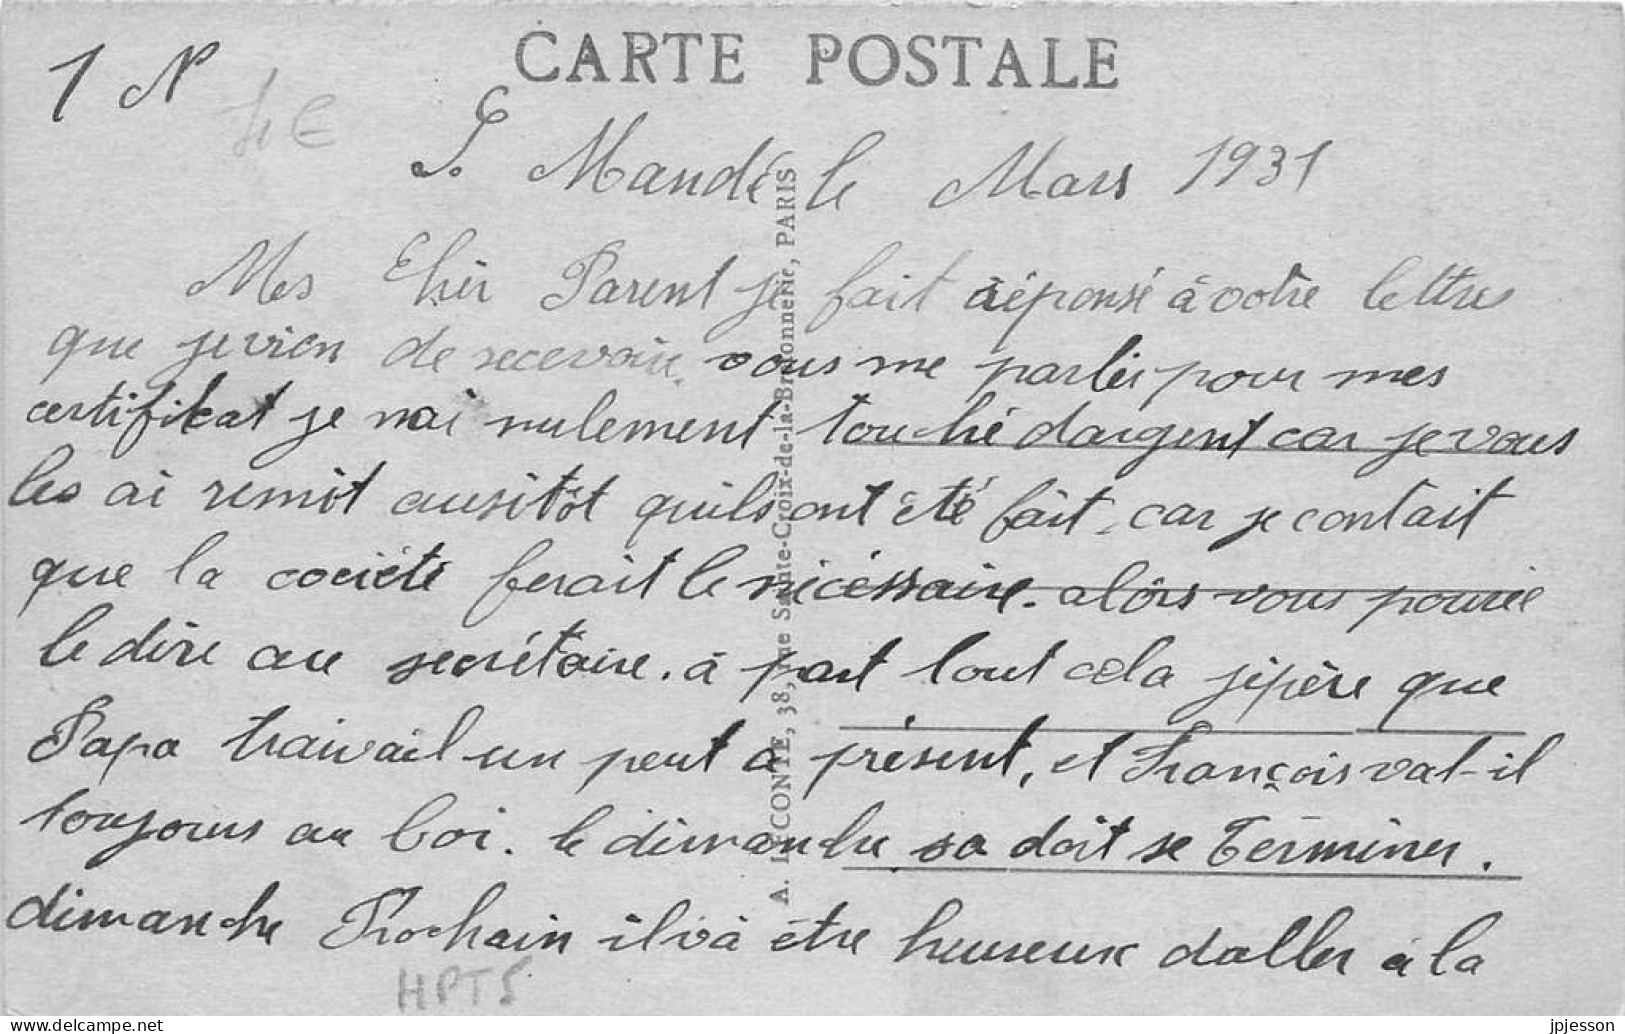 CARTE POSTALE
1 N
4 €
S. Mandé le Mars 1931
Mes Chèr Parent je fait réponsé à votre lettre
que je vien de recevoir. vous me parler pour mes
certifikat je n'ai nulement touché dargent car je vous
les ai remit ausitôt quils ont été fait, car je contait
que la cociété ferait le nécéssaire. alors vous pourié
le dire au secrétaire. à part tout cela j'épère que
Papa travail un peut à présent, et François vat-il
toujours au boi. le dimanche sa doit se Terminer.
dimanche Prochain il và être heureux daller à la
A. LECONTE, 38, rue Sainte-Croix-de-la-Bretonnerie, PARIS
HPT5
https://www.delcampe.net
jpjesson